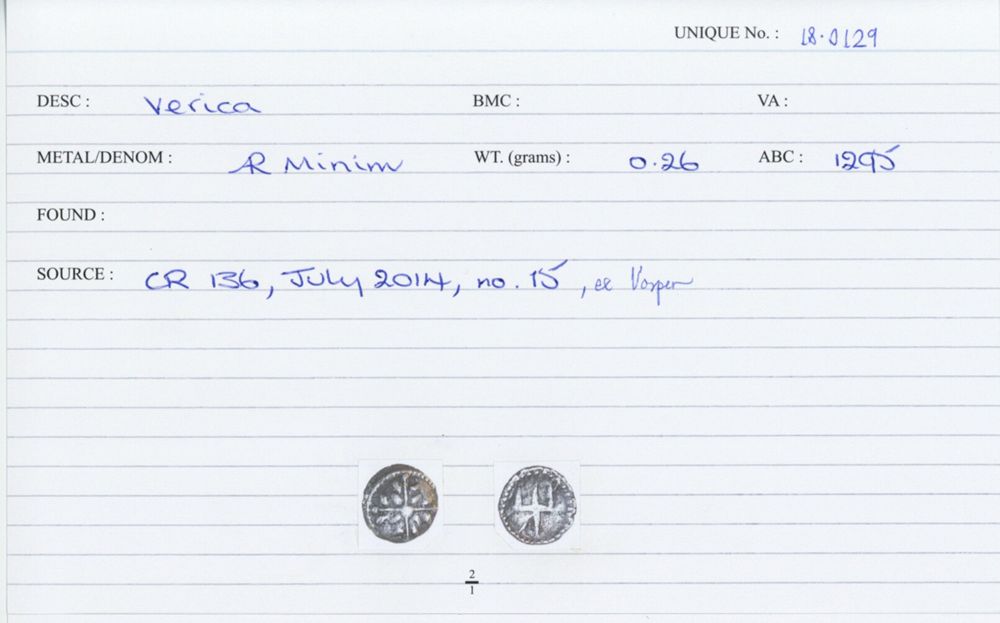 UNIQUE No. : 18.0129
DESC : Verica BMC : VA :
METAL/DENOM : AR Minim WT. (grams) : 0.26 ABC : 1295
FOUND :
SOURCE : CR 136, July 2014, no. 15, ex Vosper
2
1